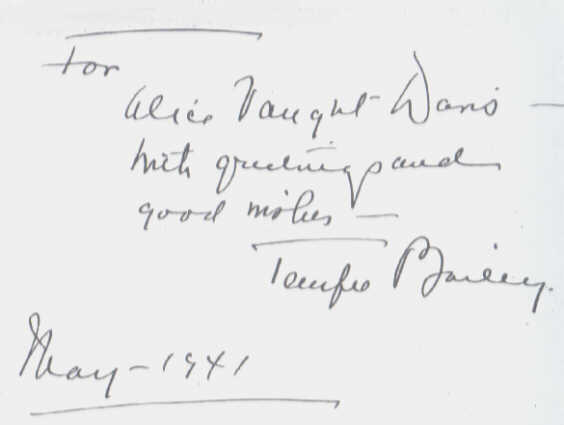 For
Alice Vaught Davis —
with greetings and
good wishes —
Temple Bailey.
May - 1941